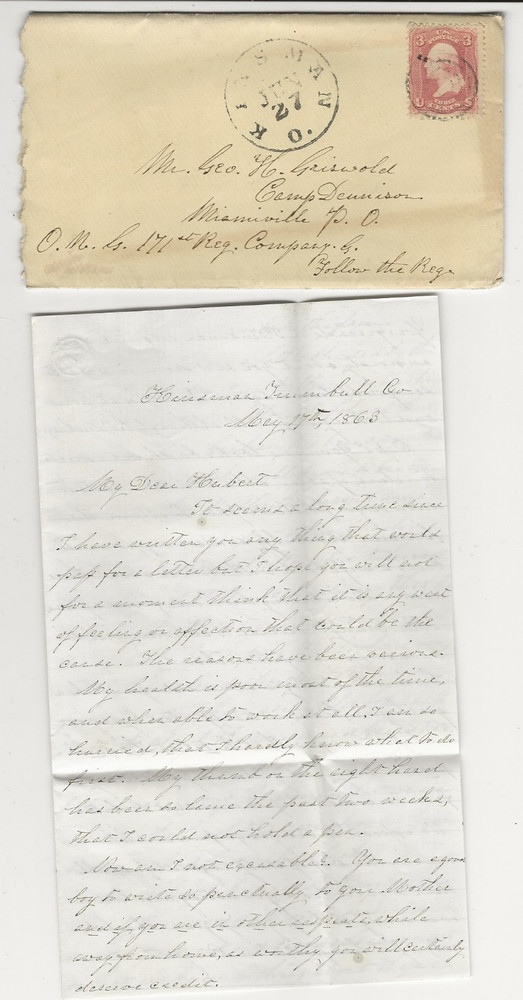 KINSMAN O.
JUN
27
U.S. POSTAGE
3 3
THREE
CENTS
Mr. Geo. H. Griswold
Camp Dennison
Miamiville P. O.
O. N. G. 171st Reg. Company. G.
Follow the Reg.
Kinsman Trumbull Co
May 17th, 1863
My Dear Hubert
It seems a long time since
I have written you any thing that would
pass for a letter but I hope you will not
for a moment think that it is any want
of feeling or affection that could be the
cause. The reasons have been various.
My health is poor most of the time,
and when able to work at all, I am so
hurried, that I hardly know what to do
first. My thumb on the right hand
has been so lame the past two weeks,
that I could not hold a pen.
Now am I not excusable? You are a good
boy to write so punctually to your Mother
and if you are in other respects, while
away from home, as worthy, you will certainly
deserve credit.